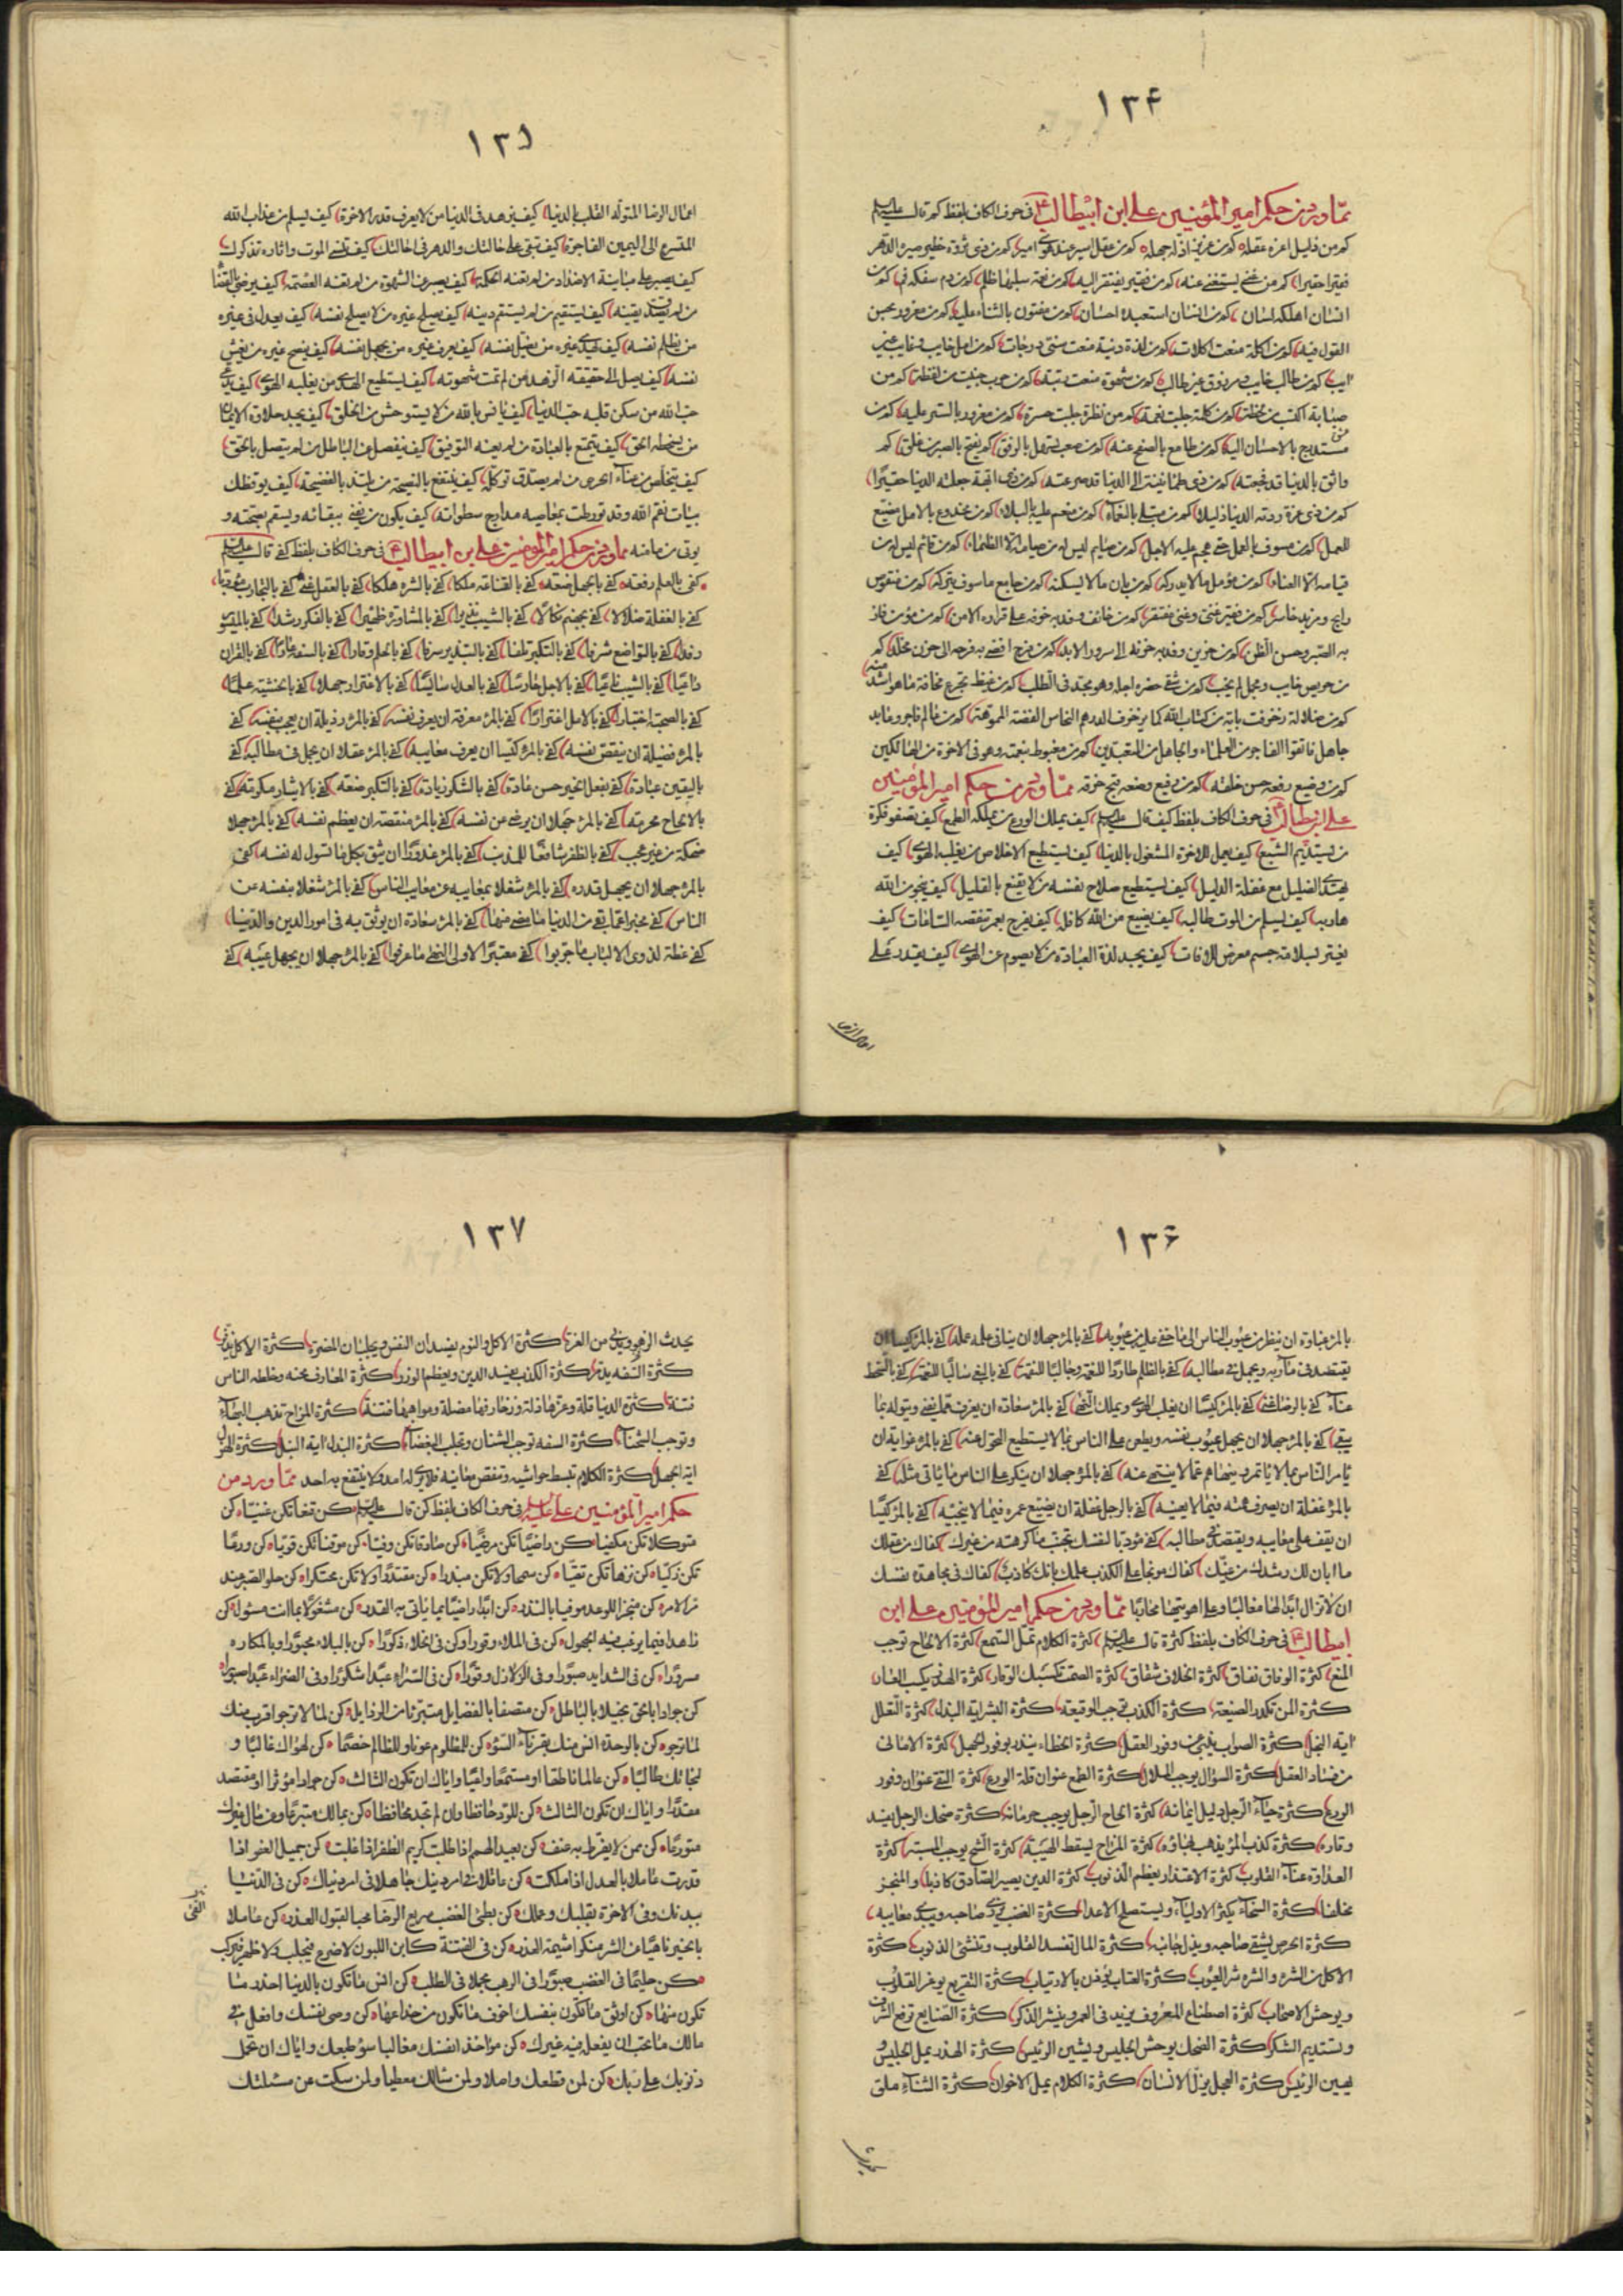 ١٣٤
مما ورد من حكم امير المؤمنين على ابن ابيطالب ع فى حرف الكاف بلفظ كم قال عليه السلم
كم من ذليل اعزه عقله كم من عزيز اذله جهله كم من عقل اسير عند هوى امير كم من ذى ثروة خطير صيره الدهر
فقيرا حقيرا كم من غنى يستغنى عنه كم من فقير يفتقر اليه كم من نعمة سلبها ظلم كم من دم سفكه فم كم من
انسان اهلكه لسان كم من انسان استعبده احسان كم من مفتون بالثناء عليه كم من مغرور بحسن
القول فيه كم من اكلة منعت اكلات كم من لذة دنية منعت سنى درجات كم من امل خايب وغايب غير
ايب كم من طالب خايب ومرزوق غير طالب كم من شهوة منعت رتبة كم من حرب جنيت من لفظة كم من
صبابة اكتسبت من لحظة كم من كلمة سلبت نعمة كم من نظرة جلبت حسرة كم من مغرور بالستر عليه كم من
مستدرج بالاحسان اليه كم من طامع بالصفح عنه كم من صعب يتسهل بالرفق كم يفتح بالصبر من غلق كم
واثق بالدنيا قد فجعته كم من ذى طمانينة الى الدنيا قد صرعته كم من ذى ابهة جعلته الدنيا حقيرا
كم من ذى عزة ردته الدنيا ذليلا كم من مبتلى بالنعماء كم من منعم عليه بالبلاء كم من مخدوع بالامل مضيع
للعمل كم من مسوف بالعمل حتى هجم عليه الاجل كم من صايم ليس له من صيامه الا الظماء كم من قائم ليس له من
قيامه الا العناء كم من مؤمل ما لا يدركه كم من بان ما لا يسكنه كم من جامع ما سوف يتركه كم من منقوص
رابح ومزيد خاسر كم من فقير غنى وغنى مفتقر كم من خائف وفد به خوفه على قرارة الامن كم من مؤمن فاز
به الصبر وحسن الظن كم من حزين وفد به حزنه الى سرور الابد كم من فرح افضى به فرحه الى حزن مخلد كم
من حريص خايب ومجمل لم يخب كم من شقى حضره اجله وهو مجد فى الطلب كم من غيظ تجرع مخافة ما هو اشد منه
كم من ضلالة زخرفت باية من كتاب الله كما يزخرف الدرهم النحاس الفضة المموهة كم من عالم فاجر وعابد
جاهل فاتقوا الفاجر من العلماء والجاهل من المتعبدين كم من مغبوط بنعمته وهو فى الاخرة من الهالكين
كم من وضيع رفعه حسن خلقه كم من رفيع وضعه قبح خرقه مما ورد من حكم امير المؤمنين
على ابن ابيطالب ع فى حرف الكاف بلفظ كيف قال عليه السلم كيف يملك الورع من يملكه الطمع كيف تصفو فكرة
من يستديم الشبع كيف يعمل للاخرة المشغول بالدنيا كيف يستطيع الاخلاص من يغلبه الهوى كيف
يهتدى الضليل مع غفلة الدليل كيف يستطيع صلاح نفسه من لا يقنع بالقليل كيف ينجو من الله
هاربه كيف يسلم من الموت طالبه كيف يضيع من الله كافله كيف يفرح بعمر تنقصه الساعات كيف
يغتر بسلامة جسم معرض للافات كيف يجد لذة العبادة من لا يصوم عن الهوى كيف يقدر على
١٣٥
اعمال الرضا المتوله القلب بالدنيا كيف يزهد فى الدنيا من لا يعرف قدر الاخرة كيف يسلم من عذاب الله
المتسرع الى اليمين الفاجرة كيف تبقى على حالتك والدهر فى احالتك كيف تنسى الموت واثاره تذكرك
كيف يصبر على مباينة الاضداد من لم تعنه الحكمة كيف يصبر عن الشهوة من لم تعنه العصمة كيف يرضى بالقضا
من لم يصدق يقينه كيف يستقيم من لم يستقم دينه كيف يصلح غيره من لا يصلح نفسه كيف يعدل فى غيره
من يظلم نفسه كيف يهدى غيره من يضل نفسه كيف يعرف غيره من يجهل نفسه كيف ينصح غيره من يغش
نفسه كيف يصل الى حقيقة الزهد من لم تمت شهوته كيف يستطيع الهدى من يغلبه الهوى كيف يدعى
حب الله من سكن قلبه حب الدنيا كيف يانس بالله من لا يستوحش من الخلق كيف يجد حلاوة الايمان
من يسخطه الحق كيف يتمتع بالعبادة من لم يعنه التوفيق كيف ينفصل عن الباطل من لم يتصل بالحق
كيف يتخلص من عناء الحرص من لم يصدق توكله كيف ينتفع بالنصيحة من يلتذ بالفضيحة كيف يوقظك
بيات نقم الله وقد تورطت بمعاصيه مدارج سطواته كيف يكون من يفنى ببقائه ويسقم بصحته و
يوتى من مامنه مما ورد من حكم امير المومنين على بن ابيطالب ع فى حرف الكاف بلفظ كفى قال عليه السلم
كفى بالعلم رفعة كفى بالجهل ضعة كفى بالقناعة ملكا كفى بالشره هلكا كفى بالعقل غنى كفى بالتجارب مؤدبا
كفى بالغفلة ضلالا كفى بجهنم نكالا كفى بالشيب نذيرا كفى بالمشاورة ظهيرا كفى بالفكر رشدا كفى بالميسور
رفدا كفى بالتواضع شرفا كفى بالتكبر تلفا كفى بالتبذير سرفا كفى بالحلم وقارا كفى بالسفه عارا كفى بالقران
داعيا كفى بالشيب ناعيا كفى بالاجل حارسا كفى بالعدل سائسا كفى بالاغترار جهلا كفى بالخشية علما
كفى بالصحبة اختبارا كفى بالامل اغترارا كفى بالمرء معرفة ان يعرف نفسه كفى بالمرء رذيلة ان يعجب بنفسه كفى
بالمرء فضيلة ان ينقص نفسه كفى بالمرء كيسا ان يعرف معايبه كفى بالمرء عقلا ان يجمل فى مطالبه كفى
باليقين عبادة كفى بفعل الخير حسن عادة كفى بالشكر زيادة كفى بالتكبر ضعة كفى بالايثار مكرمة كفى
بالالحاح محرمة كفى بالمرء جهلا ان يرضى عن نفسه كفى بالمرء منقصة ان يعظم نفسه كفى بالمرء جهلا
ضحكه من غير عجب كفى بالظفر شافعا للمذنب كفى بالمرء غرورا ان يثق بكل ما تسول له نفسه كفى
بالمرء جهلا ان يجهل قدره كفى بالمرء شغلا بمعايبه عن معايب الناس كفى بالمرء شغلا بنفسه عن
الناس كفى مخبرا عما بقى من الدنيا ما مضى منها كفى بالمرء سعادة ان يوثق به فى امور الدين والدنيا
كفى عظة لذوى الالباب ما جربوا كفى معتبرا لاولى النهى ما عرفوا كفى بالمرء جهلا ان يجهل عيبه كفى
١٣٦
بالمرء غباوة ان ينظر من عيوب الناس الى ما خفى عليه من عيوبه كفى بالمرء جهلا ان ينافى علمه عمله كفى بالمرء كيسا ان
يقتصد فى مآربه ويجمل فى مطالبه كفى بالظلم طاردا للنعمة وجالبا للنقمة كفى بالبغى سالبا للنعمة كفى بالسخط
عناء كفى بالرضا غنى كفى بالمرء كيسا ان يغلب الهوى ويملك النهى كفى بالمرء سعادة ان يعزف عما يفنى ويتوله بما
يبقى كفى بالمرء جهلا ان يجهل عيوب نفسه ويطعن على الناس بما لا يستطيع التحول عنه كفى بالمرء غواية ان
يامر الناس بما لا ياتمر به وينهاهم عما لا ينتهى عنه كفى بالمرء جهلا ان ينكر على الناس ما ياتى مثله كفى
بالمرء غفلة ان يصرف همته فيما لا يعنيه كفى بالرجل غفلة ان يضيع عمره فيما لا ينجيه كفى بالمرء كيسا
ان يقف على معايبه ويقتصد فى مطالبه كفى مؤدبا لنفسك تجنب ما كرهته من غيرك كفاك من عقلك
ما ابان لك رشدك من غيك كفاك موبخا على الكذب علمك بانك كاذب كفاك فى مجاهدة نفسك
ان لا تزال ابدا لها مغالبا وعلى اهويتها محاربا مما ورد من حكم امير المؤمنين على ابن
ابيطالب ع فى حرف الكاف بلفظ كثرة قال عليه السلم كثرة الكلام تمل السمع كثرة الالحاح توجب
المنع كثرة الوفاق نفاق كثرة الخلاف شقاق كثرة الصمت تكسبك الوقار كثرة الهذر يكسب العار
كثرة المن تكدر الصنيعة كثرة الكذب توجب الوقيعة كثرة البشر اية البذل كثرة التعلل
اية البخل كثرة الصواب ينبئ عن وفور العقل كثرة الخطاء ينذر بوفور الجهل كثرة الامانى
من فساد العقل كثرة السؤال يوجب الملال كثرة الطمع عنوان قلة الورع كثرة التقى عنوان وفور
الورع كثرة حياء الرجل دليل ايمانه كثرة الحاح الرجل يوجب حرمانه كثرة ضحك الرجل يفسد
وقاره كثرة كذب المرء يذهب بهاؤه كثرة المزاح يسقط الهيبة كثرة الشح يوجب المسبة كثرة
العداوة عناء القلوب كثرة الاعتذار يعظم الذنوب كثرة الدين يصير الصادق كاذبا والمنجز
مخلفا كثرة السخاء يكثر الاولياء ويستصلح الاعداء كثرة الغضب يزرى صاحبه ويبدى معايبه
كثرة الحرص يشقى صاحبه ويذل جانبه كثرة المال تفسد القلوب وتنشئ الذنوب كثرة
الاكل من الشره والشره شر العيوب كثرة العتاب يؤذن بالارتياب كثرة التقريع يوغر القلوب
ويوحش الاصحاب كثرة اصطناع المعروف يزيد فى العمر وينشر الذكر كثرة الصنايع ترفع الشرف
وتستديم الشكر كثرة الضحك يوحش الجليس ويشين الرئيس كثرة الهذر يمل الجليس و
يهين الرئيس كثرة العجل يزل الانسان كثرة الكلام يمل الاخوان كثرة الثناء ملق
١٣٧
يحدث الزهو ويدنى من الغرة كثرة الاكل والنوم يفسدان النفس ويجلبان المضرة كثرة الاكل يذفر
كثرة السفه كثرة الكذب يفسد الدين ويعظم الوزر كثرة المعارف محنة وخلطة الناس
فتنة كثرة الدنيا قلة وعزها ذلة وزخارفها مضلة ومواهبها فتنة كثرة المزاح تذهب البهاء
وتوجب الشحناء كثرة السفه توجب الشنان وتجلب البغضاء كثرة البذل اية النبل كثرة الهزل
اية الجهل كثرة الكلام تبسط حواشيه وتنقص معانيه فلا يرى له امد ولا ينتفع به احد مما ورد من
حكم امير المؤمنين على عليه السلم فى حرف الكاف بلفظ كن قال عليه السلم كن قنعا تكن غنيا كن
متوكلا تكن مكفيا كن راضيا تكن مرضيا كن صادقا تكن وفيا كن موقنا تكن قويا كن ورعا
تكن زكيا كن نزها تكن تقيا كن سمحا ولا تكن مبذرا كن مقتدرا ولا تكن محتكرا كن حلو الصبر عند
مر الامر كن منجزا للوعد موفيا بالنذر كن ابدا راضيا بما ياتى به القدر كن مشغولا بما انت مسئول كن
زاهدا فيما يرغب فيه الجهول كن فى الملاء وقورا وكن فى الخلاء ذكورا كن بالبلاء محبورا وبالمكاره
مسرورا كن فى الشدايد صبورا وفى الزلازل وقورا كن فى السراء عبدا شكورا وفى الضراء عبدا صبورا
كن جوادا بالحق بخيلا بالباطل كن متصفا بالفضايل متبرئا من الرذايل كن لما لا ترجو اقرب منك
لما ترجو كن بالوحدة انس منك بقرناء السوء كن للمظلوم عونا وللظالم خصما كن لهواك غالبا و
لنجاتك طالبا كن عالما ناطقا او مستمعا واعيا واياك ان تكون الثالث كن جوادا مؤثرا او مقتصدا
مقدرا واياك ان تكون الثالث كن للود حافظا وان لم تجد محافظا كن بمالك متبرعا وعن مال غيرك
متورعا كن ممن لا يفرط به عنف كن بعيد الهمم اذا طلبت كريم الظفر اذا غلبت كن جميل العفو اذا
قدرت عاملا بالعدل اذا ملكت كن عاقلا فى امر دينك جاهلا فى امر دنياك كن فى الدنيا
ببدنك وفى الاخرة بقلبك وعملك كن بطئ الغضب سريع الفئ محبا لقبول العذر كن عاملا
بالخير ناهيا عن الشر منكرا شيمة الغدر كن فى الفتنة كابن اللبون لا ضرع فيحلب ولا ظهر فيركب
كن حليما فى الغضب صبورا فى الرهب مجملا فى الطلب كن انس ما تكون بالدنيا احذر ما
تكون منها كن اوثق ما تكون بنفسك اخوف ما تكون من خداعها كن وصى نفسك وافعل فى
مالك ما تحب ان يفعل فيه غيرك كن مؤاخذا نفسك مغالبا سوء طبعك واياك ان تحمل
ذنوبك على ربك كن لمن قطعك واصلا ولمن سالك معطيا ولمن سكت عن مسئلتك